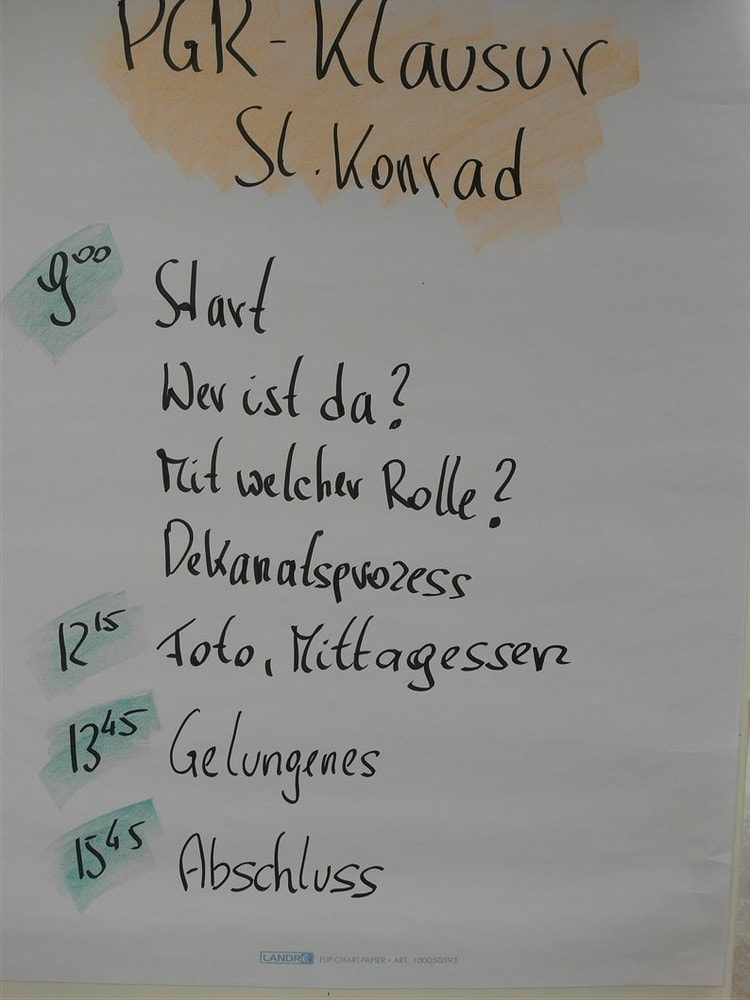 PGR-Klausur
St. Konrad
9⁰⁰ Start
Wer ist da?
Mit welcher Rolle?
Dekanatsprozess
12¹⁵ Foto, Mittagessen
13⁴⁵ Gelungenes
15⁴⁵ Abschluss
LANDRÉ FLIP-CHART-PAPIER • ART. 100050593